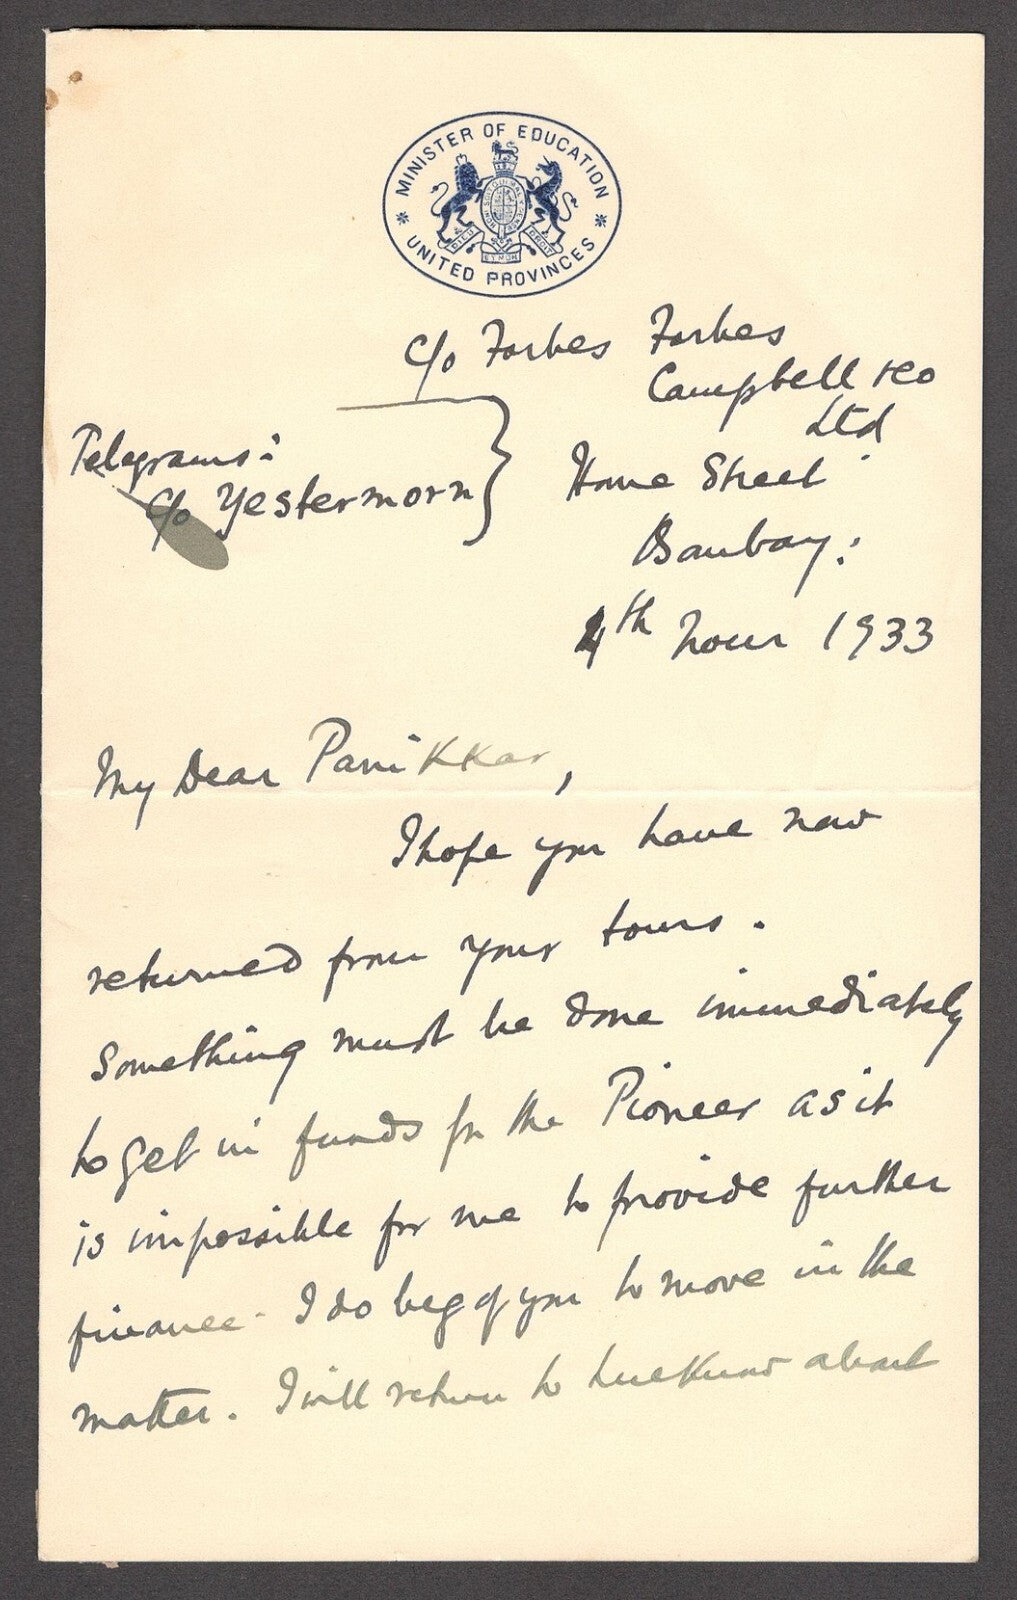 MINISTER OF EDUCATION
UNITED PROVINCES
DIEU ET MON DROIT
c/o Forbes Forbes
Campbell & Co
Ltd
Telegrams:
c/o Yestermorn
Home Street
Bombay:
4th Novr 1933
My Dear Panikkar,
I hope you have now
returned from your tours.
Something must be done immediately
to get in funds for the Pioneer as it
is impossible for me to provide further
finance. I do beg of you to move in the
matter. I will return to Lucknow about